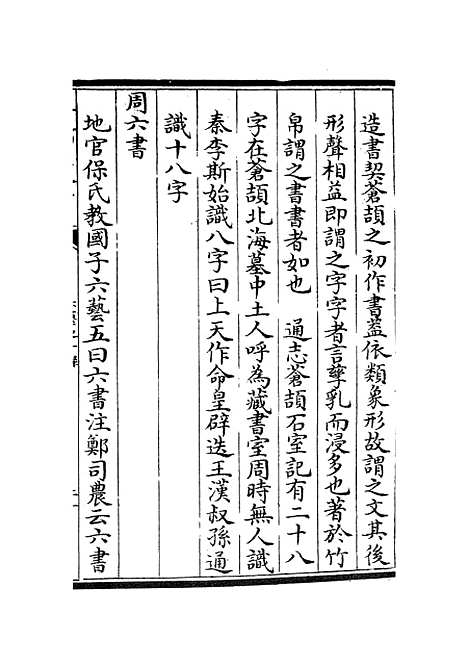 造書契蒼頡之初作書蓋依類象形故謂之文其後
形聲相益即謂之字字者言孳乳而浸多也著於竹
帛謂之書書者如也　通志蒼頡石室記有二十八
字在蒼頡北海墓中土人呼為藏書室周時無人識
秦李斯始識八字曰上天作命皇辟迭王漢叔孫通
識十八字
周六書
地官保氏教國子六藝五曰六書注鄭司農云六書